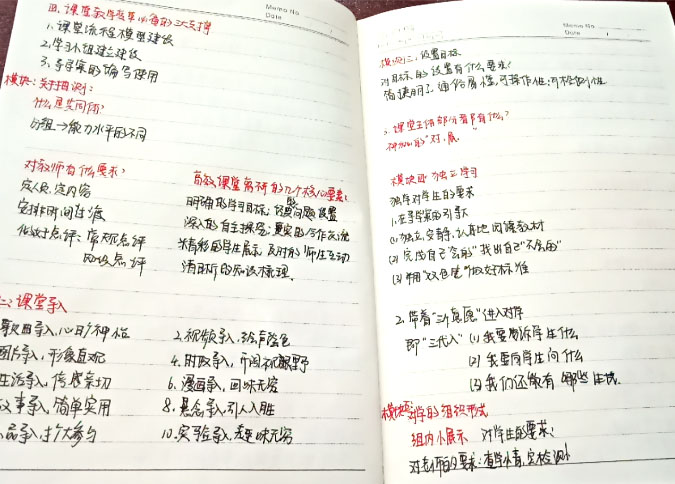 Memo No.
Date
四.课堂教学改革必备的三大支撑
1.课堂流程模型建设
2.学习小组建立建设
3.导学案的编写使用
模块:关于抽测:
什么是共同体?
分组→能力水平的不同
对教师有什么要求?
定人员,定内容
安排时间过准
化对点评:常规点评
知识点评
高效课堂教研的几个核心要素:
明确的学习目标;问题设置
深入的自主探究;真实的合作交流
精彩的学生展示 及时的师生互动
清晰的知识梳理.
二:课堂导入
歌曲导入,心旷神怡
2.视频导入,绘声绘色
图片导入,形像直观
4.时政导入,开阔视野
生活导入,传感亲切
6.漫画导入,回味无穷
故事导入,简单实用
8.悬念导入,引人入胜
品导入,扩大参与
10.实验导入,趣味无穷
Memo No.
Date
模块三:设置目标
对目标的设置有什么要求?
简捷明了 通俗易懂,可操作性;可检测性
3.课堂主体部分有什么?
"对,展.
模块四 独立学习
独学对学生的要求
1.在导学案的引领下
(1)独立,安静,认真地阅读教材
(2)完成自己"会的"找出自己"不会的"
(3)用"双色笔"做好标准
2.带着"三个意愿"进入对学
即"三代入" (1)我要告诉学生什么
(2)我要向学生问什么
(3)我们还能有哪些生成.
模块五:
对学的组织形式
组内小展示 对学生的要求:
对老师的要求:查学情,实检测